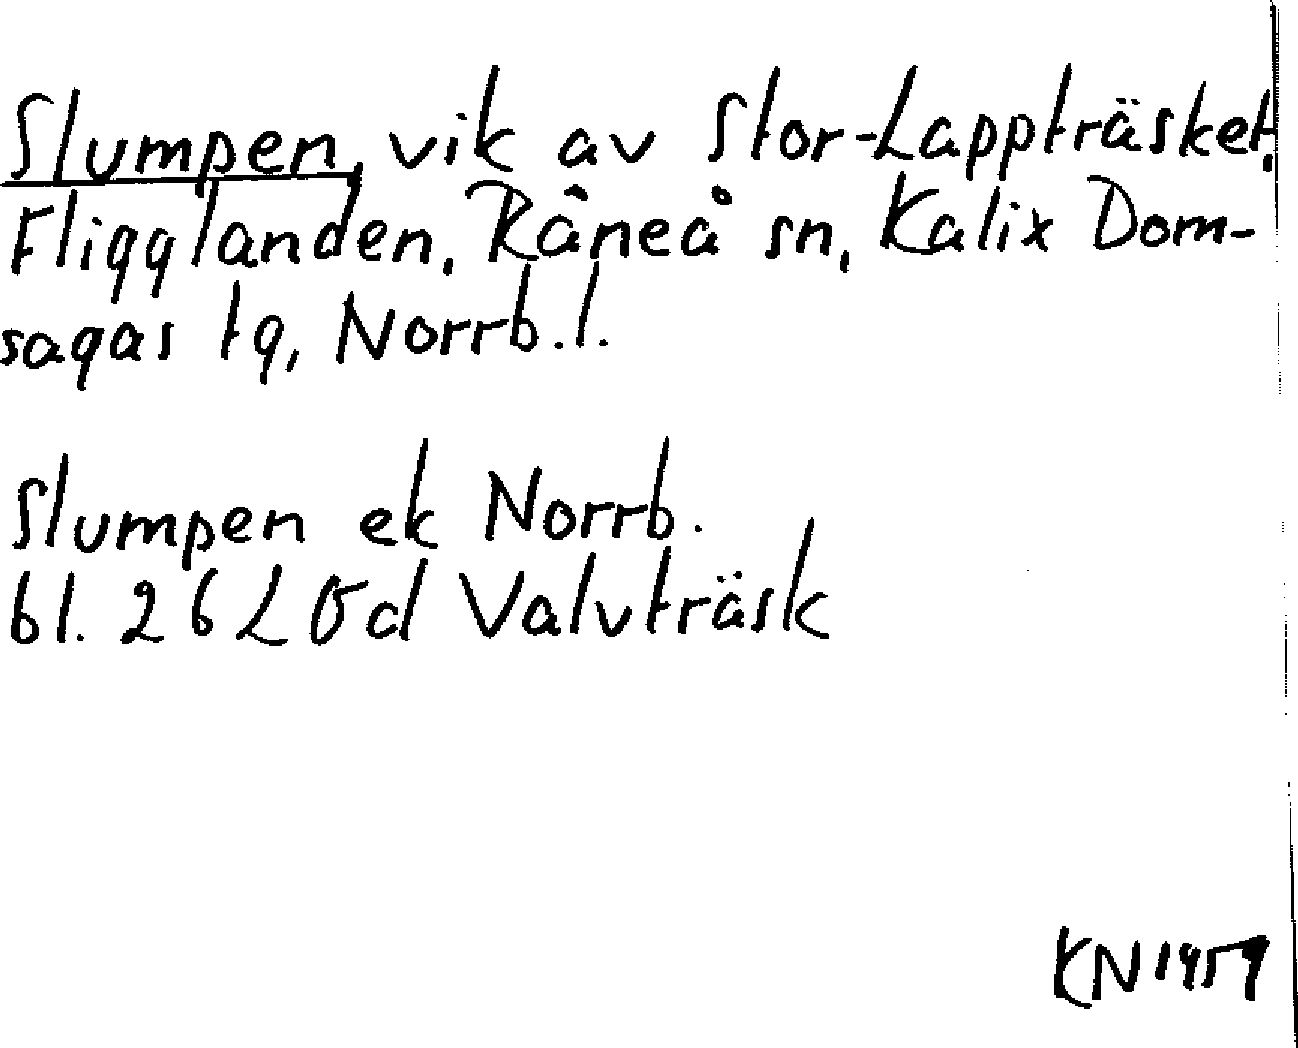 Slumpen, vik av Stor-Lappträsket,
Fligglanden, Råneå sn, Kalix Dom-
sagas tg, Norrb.l.
Slumpen ek Norrb.
bl. 26 L Öd Valvträsk
KN 1959